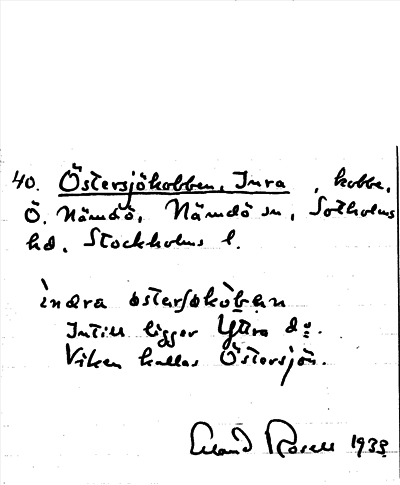 40. Östersjökobben, Inra, kobbe,
Ö. Nämdö, Nämdö sn, Sotholms
hd. Stockholms l.
indra östersjoköb̲an
Intill ligger Yttra do.
Viken kallas Östersjön.
Erland Rosell 1938